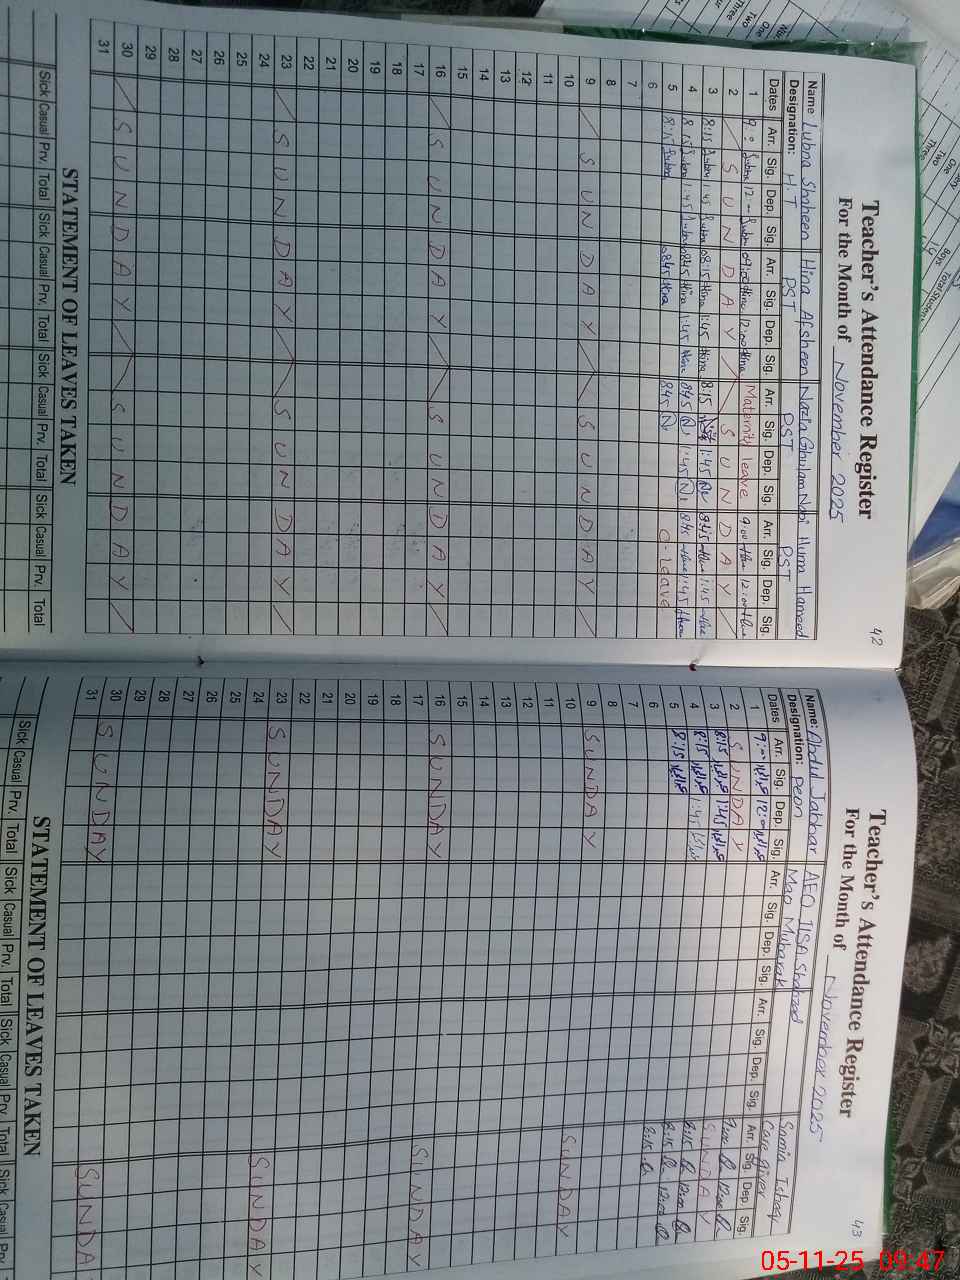 Teacher's Attendance Register
For the Month of November 2025
42
Name Lubna Shaheen Hina Afsheen Nazia Ghulam Nabi Huma Hameed
Designation: H.T PST PST PST
Dates Arr. Sig. Dep. Sig. Arr. Sig. Dep. Sig. Arr. Sig. Dep. Sig. Arr. Sig. Dep. Sig.
1 9:00 Lubna 12:00 Lubna 09:00 Hina 12:00 Hina Maternity leave 9:00 12:00
2 SUNDAY SUNDAY
3 8:15 Lubna 1:45 Lubna 08:15 Hina 1:45 Hina 8:15 1:45 8:45 1:45
4 8:15 Lubna 1:45 Lubna 0845 Hina 1:45 Hina 845 N 1:45 N 8:45 1:45
5 8:15 Lubna 0845 Hina 845 N C-leave
6
7
8
9 SUNDAY SUNDAY
10
11
12
13
14
15
16 SUNDAY SUNDAY
17
18
19
20
21
22
23 SUNDAY SUNDAY
24
25
26
27
28
29
30 SUNDAY SUNDAY
31
STATEMENT OF LEAVES TAKEN
Sick Casual Prv. Total Sick Casual Prv. Total Sick Casual Prv. Total Sick Casual Prv. Total
Teacher's Attendance Register
For the Month of November 2025
43
Name: Abdul Jabbar AEO IISA Shahzad Samia Ishaq
Designation: Peon Mao Mubarak Care giver
Dates Arr. Sig. Dep. Sig. Arr. Sig. Dep. Sig. Arr. Sig. Dep. Sig. Arr. Sig. Dep. Sig.
1 9:00 12:00 9:00 12:00
2 SUNDAY SUNDAY
3 8:15 1:45 8:15 12:00
4 8:15 1:45 8:15 12:00
5 8:15 8:15
6
7
8
9 SUNDAY SUNDAY
10
11
12
13
14
15
16 SUNDAY SUNDAY
17
18
19
20
21
22
23 SUNDAY SUNDAY
24
25
26
27
28
29
30 SUNDAY SUNDA
31
STATEMENT OF LEAVES TAKEN
Sick Casual Prv. Total Sick Casual Prv. Total Sick Casual Prv. Total Sick Casual
05-11-25 09:47